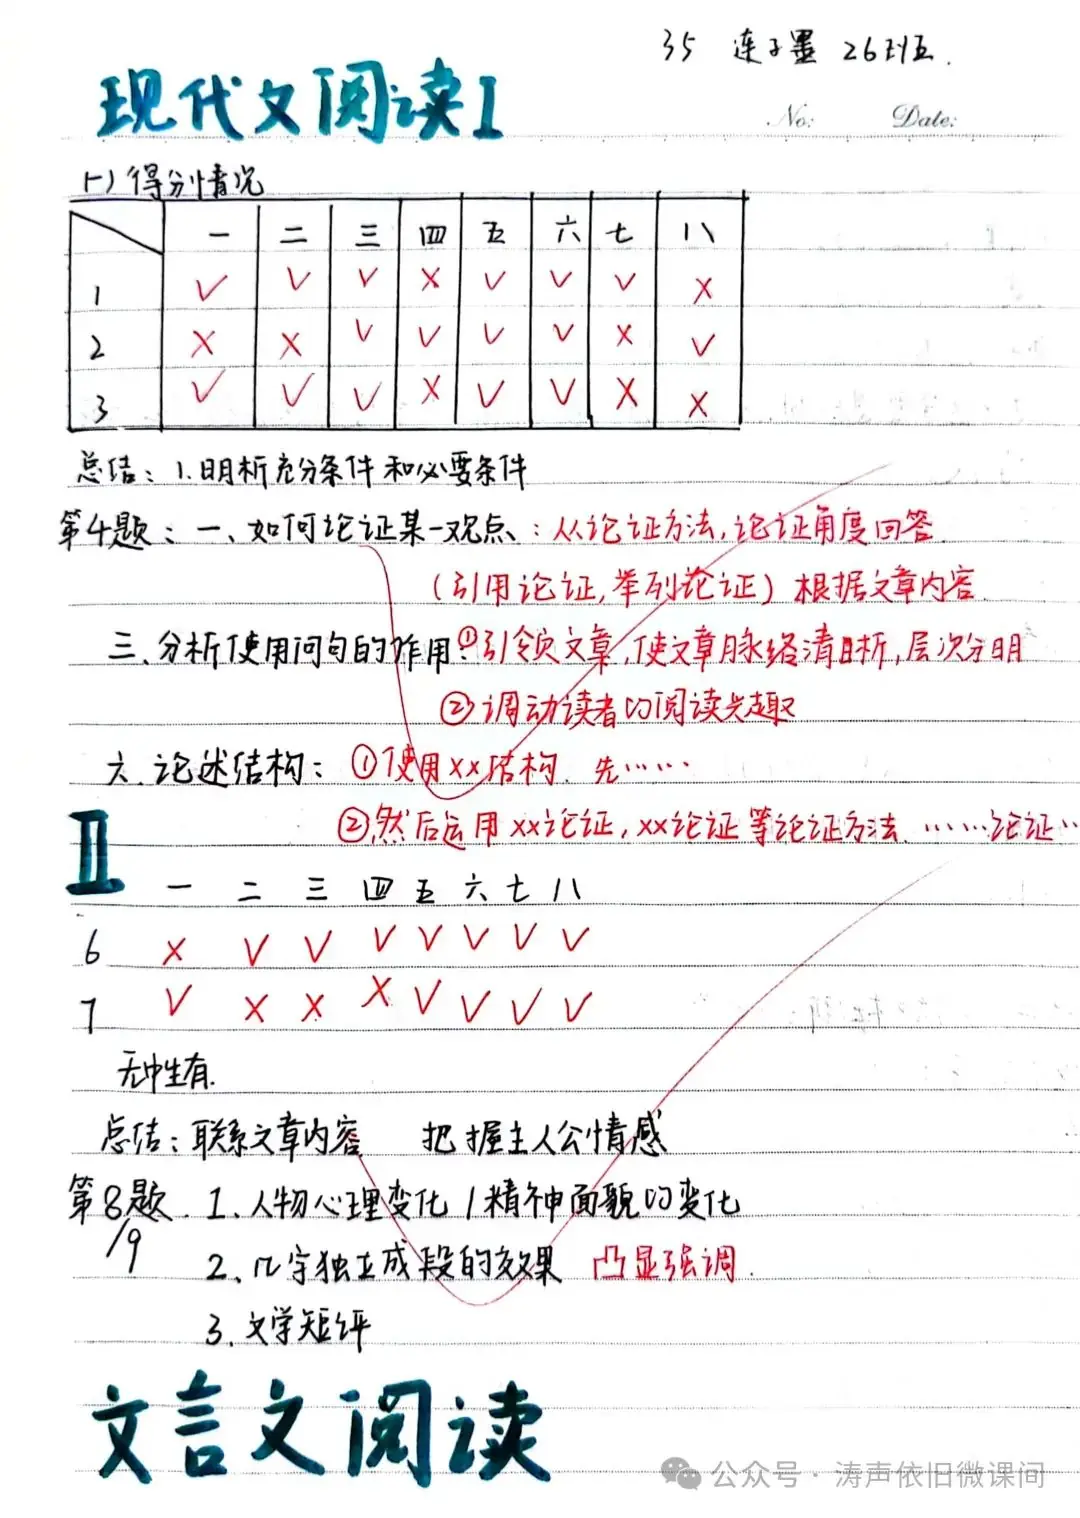 35 连子墨 26班
现代文阅读I
No: Date:
(一)得分情况
一 二 三 四 五 六 七 八
1 ✓ ✓ ✓ × ✓ ✓ ✓ ×
2 × × ✓ ✓ ✓ ✓ × ✓
3 ✓ ✓ ✓ × ✓ ✓ × ×
总结：1.明析充分条件和必要条件
第4题：一、如何论证某一观点：从论证方法,论证角度回答
(引用论证,举列论证）根据文章内容
三、分析使用问句的作用：①引领文章,使文章脉络清晰,层次分明
②调动读者的阅读兴趣
六、论述结构：①使用xx结构、先……
②然后运用xx论证,xx论证等论证方法、……论证…
II
一 二 三 四 五 六 七 八
6 × ✓ ✓ ✓ ✓ ✓ ✓ ✓
7 ✓ × × × ✓ ✓ ✓ ✓
无中生有.
总结：联系文章内容 把握主人公情感
第8题 1、人物心理变化/精神面貌的变化
/9
2、几字独立成段的效果 凸显强调.
3、文学短评
文言文阅读
公众号·涛声依旧微课间